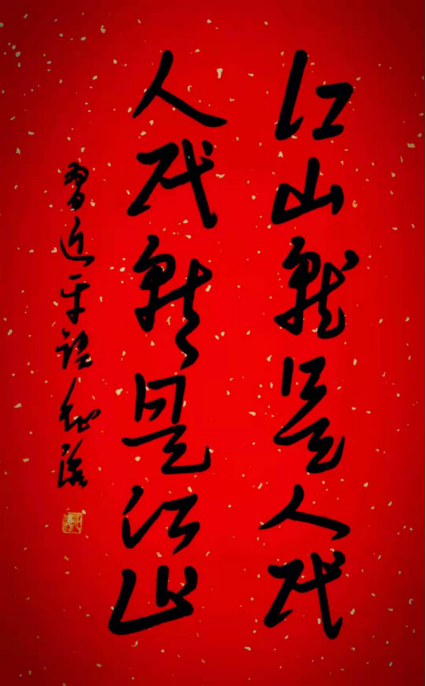 江山就是人民
人民就是江山
习近平语